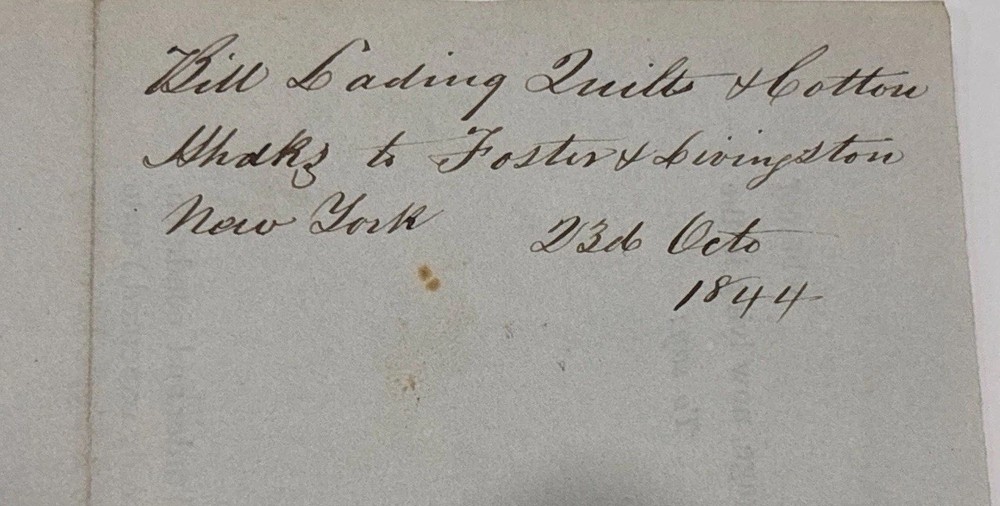 Bill Lading Quilts & Cotton
to Foster & Livingston
New York
23d Octo
1844